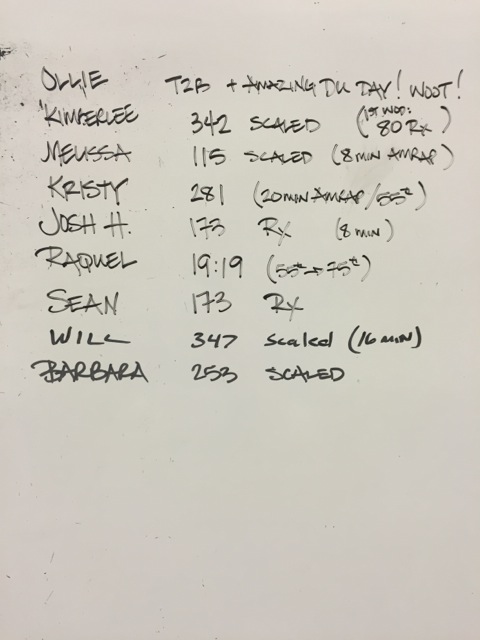 OLLIE T2B + AMAZING DU DAY! WOOT!
KIMBERLEE 342 SCALED (1ST WOD: 80 RX)
MELISSA 115 SCALED (8 MIN AMRAP)
KRISTY 281 (20 MIN AMRAP/55#)
JOSH H. 173 RX (8 MIN)
RAQUEL 19:19 (55# → 75#)
SEAN 173 RX
WILL 347 scaled (16 MIN)
BARBARA 253 SCALED